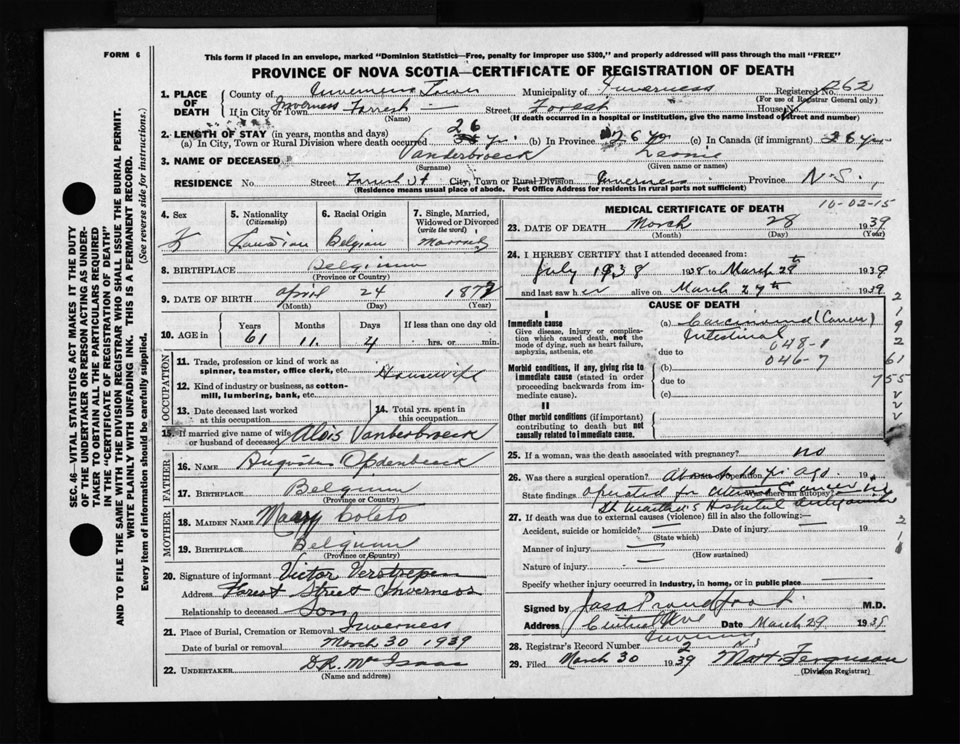 FORM 6
This form if placed in an envelope, marked "Dominion Statistics—Free, penalty for improper use $300," and properly addressed will pass through the mail "FREE"
PROVINCE OF NOVA SCOTIA—CERTIFICATE OF REGISTRATION OF DEATH
1. PLACE OF DEATH
County of Inverness Town Municipality of Inverness Registered No. 262
(For use of Registrar General only)
If in City or Town Inverness Forrest — Street Forest House No.
(Name) (If death occurred in a hospital or institution, give the name instead of street and number)
2. LENGTH OF STAY (in years, months and days)
(a) In City, Town or Rural Division where death occurred 26 yr (b) In Province 26 yr (c) In Canada (if immigrant) 26 yr
3. NAME OF DECEASED Vanderbroeck Leonie
(Surname) (Given name or names)
RESIDENCE No. Street Forrest St City, Town or Rural Division Inverness Province N.S.
(Residence means usual place of abode. Post Office Address for residents in rural parts not sufficient)
4. Sex
F
5. Nationality
(Citizenship)
Canadian
6. Racial Origin
Belgian
7. Single, Married, Widowed or Divorced
(write the word)
Married
8. BIRTHPLACE Belgium
(Province or Country)
9. DATE OF BIRTH April 24 1872
(Month) (Day) (Year)
10. AGE in
Years Months Days If less than one day old
61 11 4 hrs. or min.
OCCUPATION
11. Trade, profession or kind of work as spinner, teamster, office clerk, etc. Housewife
12. Kind of industry or business, as cotton-mill, lumbering, bank, etc.
13. Date deceased last worked at this occupation
14. Total yrs. spent in this occupation
15. If married give name of wife or husband of deceased Alois Vanderbroeck
FATHER
16. NAME Opdenbeeck
17. BIRTHPLACE Belgium
(Province or Country)
MOTHER
18. MAIDEN NAME Mary Coleto
19. BIRTHPLACE Belgium
(Province or Country)
20. Signature of informant Victor Verstrepen
Address Forest Street Inverness
Relationship to deceased Son
21. Place of Burial, Cremation or Removal Inverness
Date of burial or removal March 30 1939
22. UNDERTAKER D.R. McIsaac
(Name and address)
10-02-15
MEDICAL CERTIFICATE OF DEATH
23. DATE OF DEATH March 28 1939
(Month) (Day) (Year)
24. I HEREBY CERTIFY that I attended deceased from:
July 1938 1938 to March 28th 1939
and last saw her alive on March 27th 1939
CAUSE OF DEATH
I
Immediate cause
Give disease, injury or complication which caused death, not the mode of dying, such as heart failure, asphyxia, asthenia, etc
(a) Carcinoma (Cancer)
Intestinal
048-1
due to
046-7
Morbid conditions, if any, giving rise to immediate cause (stated in order proceeding backwards from immediate cause).
(b)
due to
(c)
II
Other morbid conditions (if important) contributing to death but not causally related to immediate cause.
2
1
9
2
61
755
25. If a woman, was the death associated with pregnancy? no
26. Was there a surgical operation? Date of operation yr ago. 19
State findings operated for Cancer Was there an autopsy?
St Martha's Hospital Antigonish
27. If death was due to external causes (violence) fill in also the following:—
Accident, suicide or homicide? — Date of injury — 19
(State which)
Manner of injury —
(How sustained)
Nature of injury —
Specify whether injury occurred in industry, in home, or in public place —
Signed by Jas Proudfoot M.D.
Address Central Ave Date March 29 1939
Inverness NS
28. Registrar's Record Number 2
29. Filed March 30 1939 Matt Ferguson
(Division Registrar)
SEC. 46—VITAL STATISTICS ACT MAKES IT THE DUTY
OF THE UNDERTAKER OR PERSON ACTING AS UNDER-
TAKER TO OBTAIN ALL THE PARTICULARS REQUIRED
IN THE "CERTIFICATE OF REGISTRATION OF DEATH"
AND TO FILE THE SAME WITH THE DIVISION REGISTRAR WHO SHALL ISSUE THE BURIAL PERMIT.
WRITE PLAINLY WITH UNFADING INK. THIS IS A PERMANENT RECORD.
Every item of information should be carefully supplied. (See reverse side for instructions.)